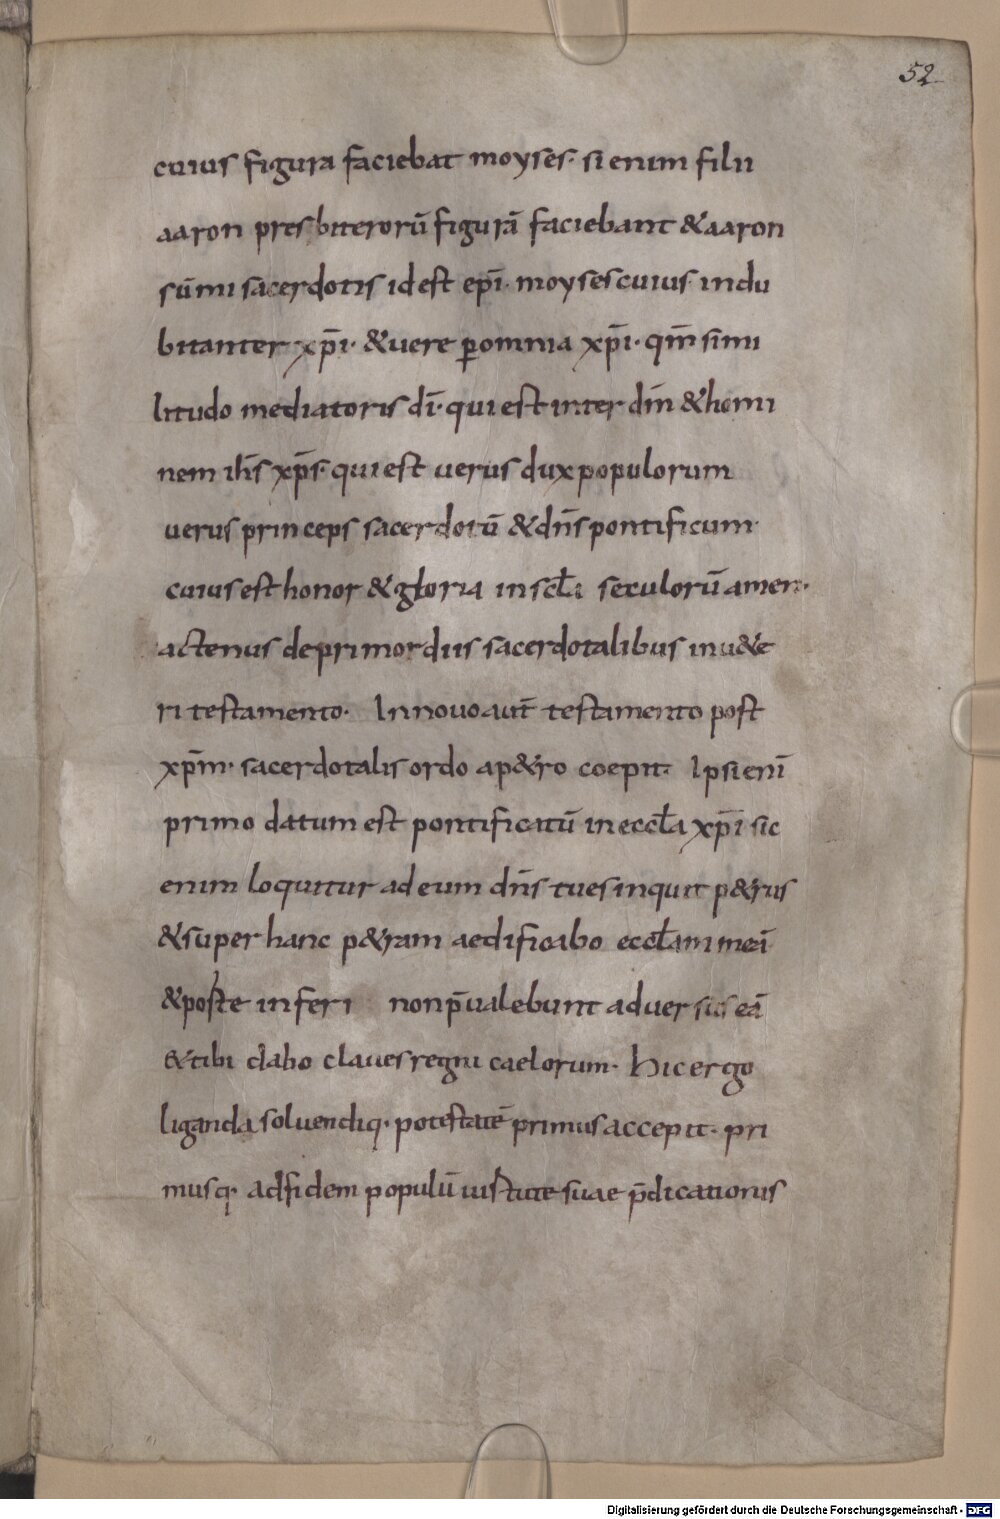 52
cuius figura faciebat moyses· si enim filii
aaron presbiterorū figurā faciebant & aaron
sūmi sacerdotis id est ep̄i· moyses cuius· indu
bitanter xp̄i· & uere ꝑ omnia xp̄i· qm̄ simi
litudo mediatoris dī· qui est inter dm̄ & homi
nem ih̄s xp̄s· qui est uerus dux populorum
uerus princeps sacerdotū & dn̄s pontificum·
cuius est honor & gloria in scl̄a seculorū amen·
actenus de primordiis sacerdotalibus in u&e
ri testamento· In nouo aut̄ testamento post
xp̄m· sacerdotalis ordo a p&ro coepit· Ipsi enī
primo datum est pontificatū in eccl̄a xp̄i sic
enim loquitur ad eum dn̄s tu es inquit p&rus
& super hanc p&ram aedificabo eccl̄am meā
& poste inferi non p̄ualebunt aduersus eā
& tibi dabo claues regni caelorum· Hic ergo
liganda soluendiq· potestatē primus accepit· pri
musq· ad fidem populū uistute suae p̄dicationis
Digitalisierung gefördert durch die Deutsche Forschungsgemeinschaft - DFG